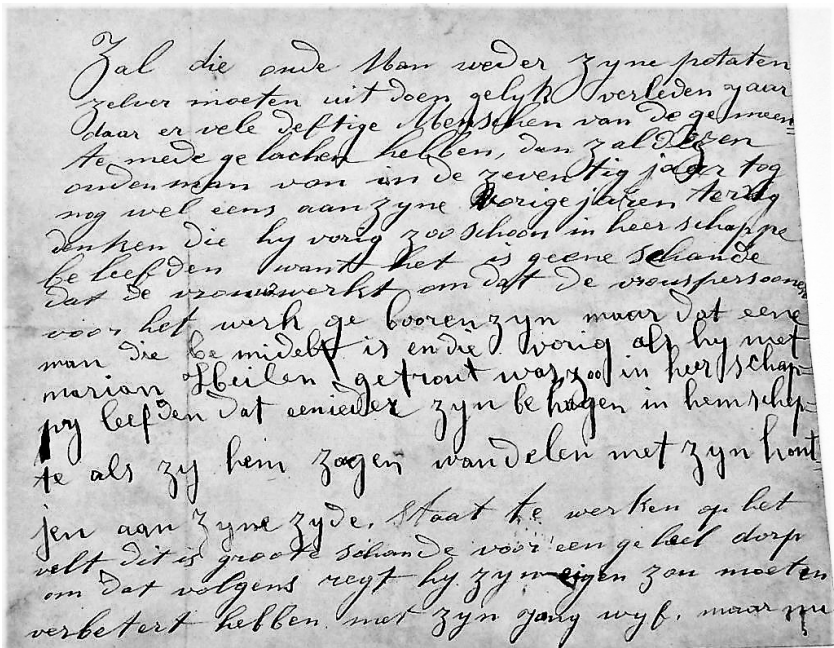 Zal die oude Man weder zyne potaten
zelver moeten uit doen gelyk verleden yaar
daar er vele deftige Menschen van de gemeen=
te mede gelachen hebben, dan zal dezen
ouden man van in de zeventig jaar tog
nog wel eens aan zyne vorige jaren terug
denken die hy vorig zoo schoon in heerschappe
beleefden want het is geene schande
dat de vrouw werkt om dat de vrouspersoonen
voor het werk ge boorenzyn maar dat eene
man die be midelt is en die vorig als hy met
marian Heilen getrout was zoo in heer schap=
py leefden dat eenieder zyn be hagen in hem schep=
te als zy hem zagen wandelen met zyn hont=
jen aan zyne zyde, staat te werken op het
velt dit is groote schande voor een geheel dorp
om dat volgens regt hy zyn eigen zou moeten
verbetert hebben met zyn yong wyf, maar nu